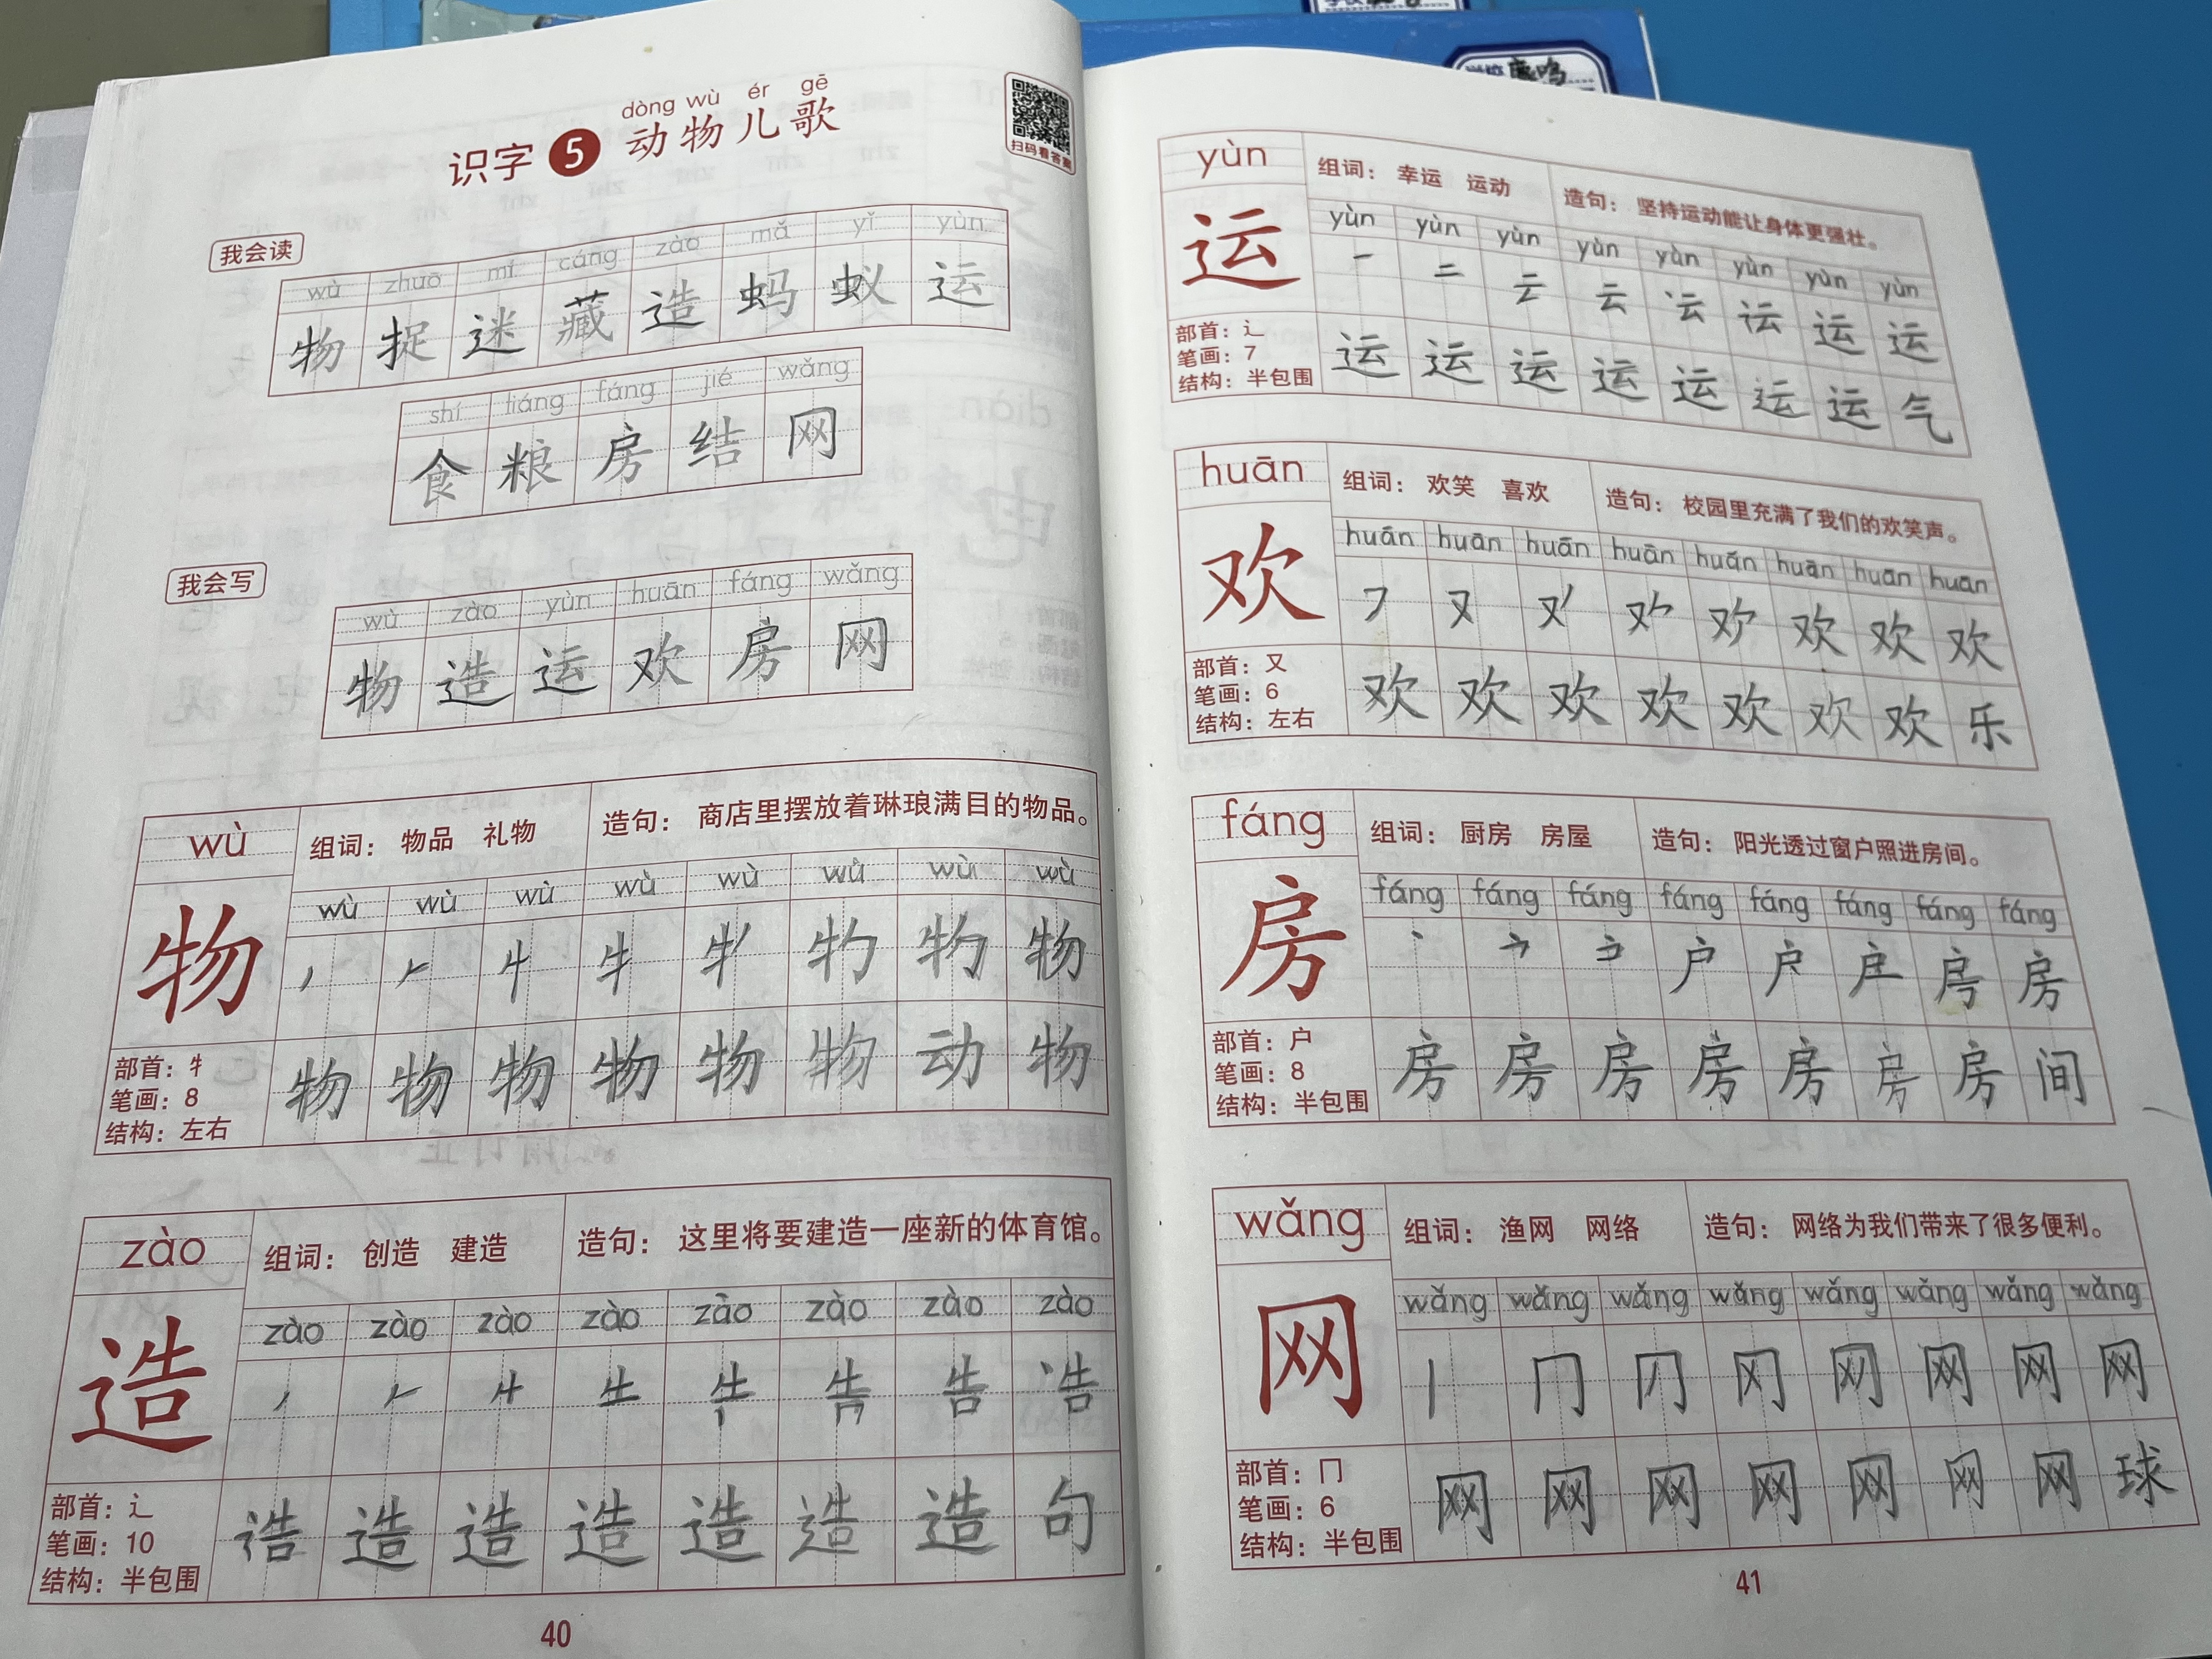 dòng wù ér gē
识字 5 动物儿歌
扫码看答案
我会读
wù zhuō mí cáng zào mǎ yǐ yùn
物 捉 迷 藏 造 蚂 蚁 运
shí liáng fáng jié wǎng
食 粮 房 结 网
我会写
wù zào yùn huān fáng wǎng
物 造 运 欢 房 网
wù 组词：物品 礼物 造句：商店里摆放着琳琅满目的物品。
wù wù wù wù wù wù wù wù
物
部首：牜
笔画：8
结构：左右
物 物 物 物 物 物 动 物
zào 组词：创造 建造 造句：这里将要建造一座新的体育馆。
zào zào zào zào zào zào zào zào
造
部首：辶
笔画：10
结构：半包围
造 造 造 造 造 造 句
40
yùn 组词：幸运 运动 造句：坚持运动能让身体更强壮。
yùn yùn yùn yùn yùn yùn yùn yùn
运 一 二 云 云 运 运
部首：辶
笔画：7
结构：半包围
运 运 运 运 运 运 运 气
huān 组词：欢笑 喜欢 造句：校园里充满了我们的欢笑声。
huān huān huān huān huān huān huān huān
欢 又 欢 欢 欢
部首：又
笔画：6
结构：左右
欢 欢 欢 欢 欢 欢 欢 乐
fáng 组词：厨房 房屋 造句：阳光透过窗户照进房间。
fáng fáng fáng fáng fáng fáng fáng fáng
房 户 房
部首：户
笔画：8
结构：半包围
房 房 房 房 房 房 房 间
wǎng 组词：渔网 网络 造句：网络为我们带来了很多便利。
wǎng wǎng wǎng wǎng wǎng wǎng wǎng wǎng
网 丨 冂 网 网 网
部首：冂
笔画：6
结构：半包围
网 网 网 网 网 网 网 球
41